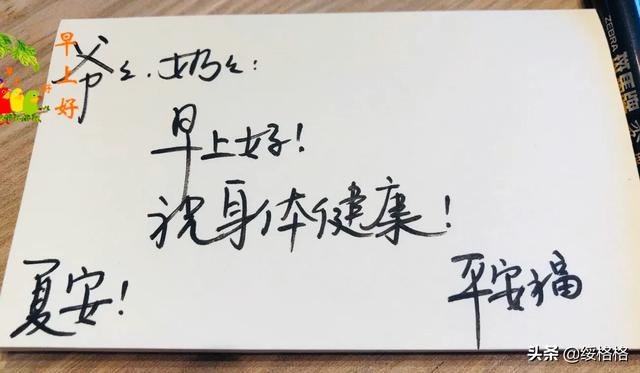 早上好
爷々、奶々：
早上好！
祝身体健康！
夏安！
平安福
ZEBRA 斑马牌
头条 @绥格格